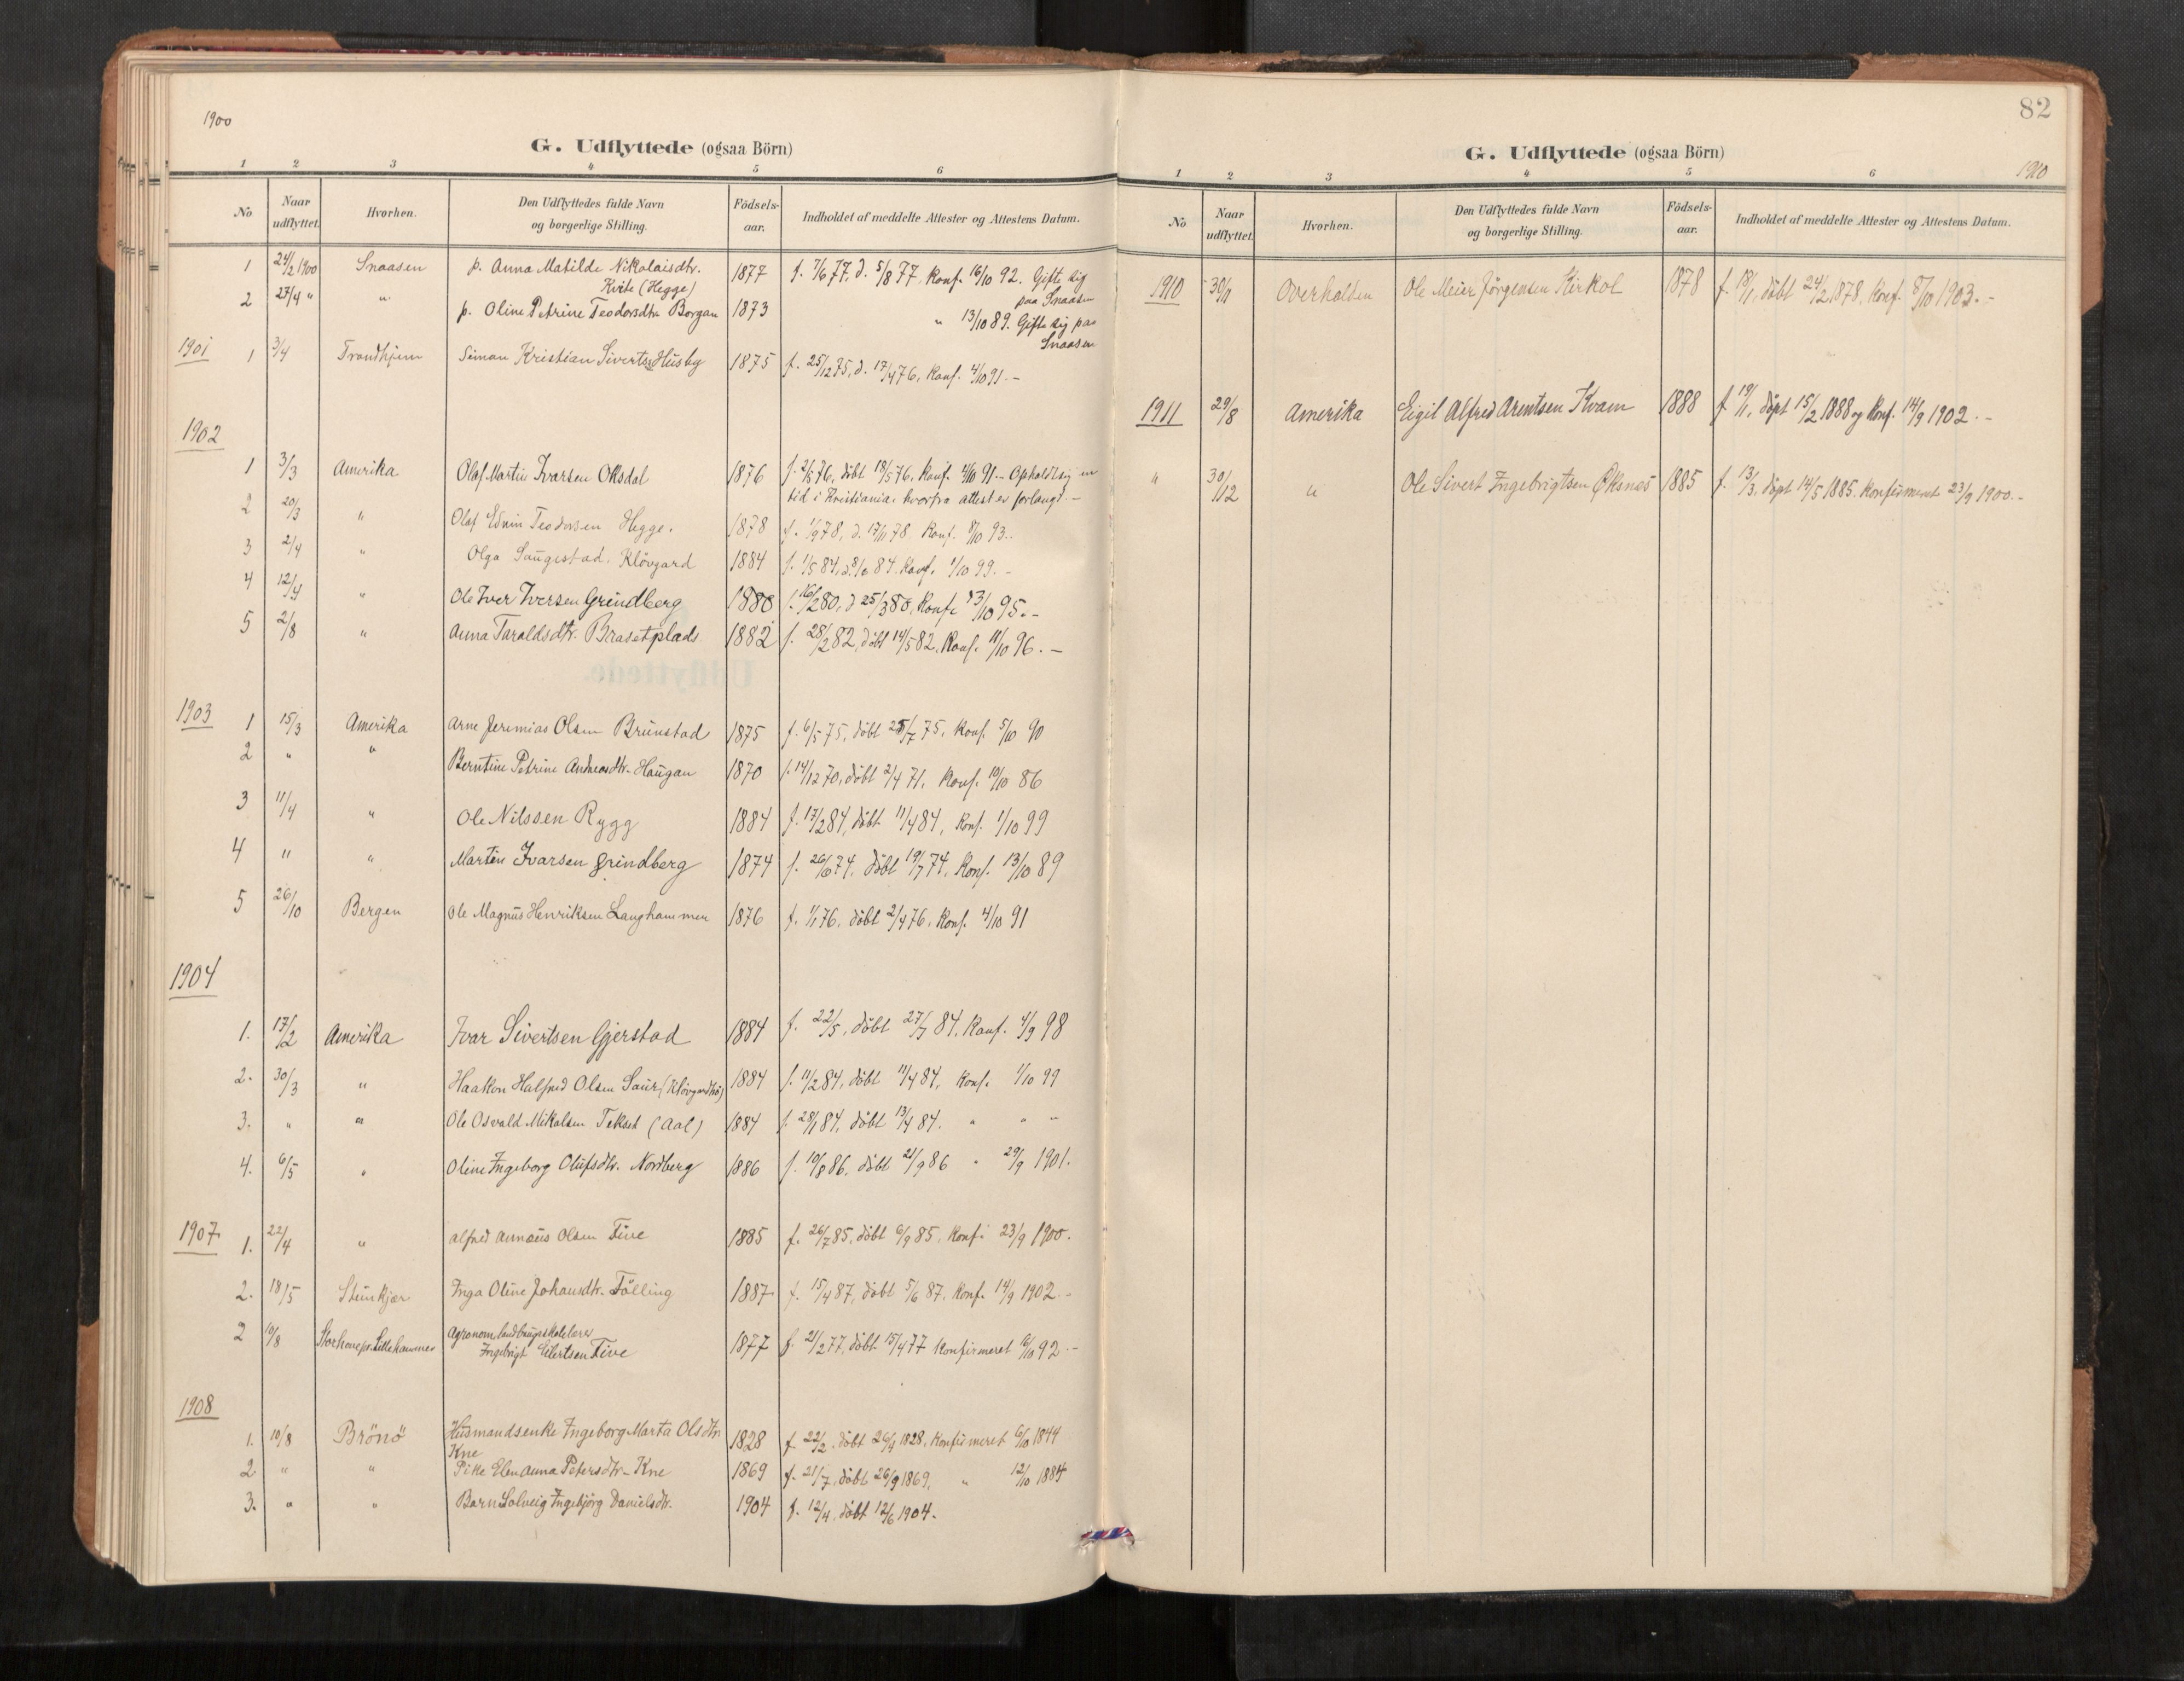 1900
G. Udflyttede (ogsaa Börn)
1 2 3 4 5 6
No Naar udflyttet. Hvorhen. Den Udflyttedes fulde Navn og borgerlige Stilling. Födsels-aar. Indholdet af meddelte Attester og Attestens Datum.
1 24/2 1900 Snaasen p. Anna Matilde Nikolaisdtr. 1877 f. 7/6 77, d. 5/8 77, Konf. 16/10 92. Gifte sig
Kvite (Hegge) paa Snaasen
2 27/4 " " p. Oline Petrine Teodorsdtr Borgan 1873 " 13/10 89. Gifte sig paa
Snaasen
1901 1 3/4 Trondhjem Simon Kristian Siverts. Husby 1875 f. 25/12 75, d. 17/4 76, Konf. 4/10 91. -
1902
1 3/3 Amerika Olaf Martin Ivarsen Oksdal 1876 f. 2/5 76, döbt 18/5 76, Konf. 4/10 91. - Opholdt sig en
tid i Kristiania, hvorfra attest er forlangt. -
2 20/3 " Olaf Edvin Teodorsen Hegge. 1878 f. 1/9 78, d. 17/11 78 Konf. 8/10 93..
3 2/4 " Olga Saugestad. Klövgard 1884 f. 1/5 84, d. 8/6 84. Konf. 1/10 99. -
4 12/4 " Ole Iver Iversen Grindberg 1880 f. 16/2 80, d 25/3 80, Konf. 13/10 95. -
5 2/8 " Anna Taraldsdtr. Brasetplads 1882 f. 28/2 82, döbt 14/5 82, Konf. 11/10 96. -
1903 1 15/3 Amerika Arne Jeremias Olsen Brunstad 1875 f. 6/5 75, döbt 25/7 75, Konf. 5/10 90
2 " " Berntine Petrine Andreasdtr. Haugan 1870 f. 14/12 70, döbt 2/4 71, Konf. 10/10 86
3 11/4 " Ole Nilssen Rygg 1884 f. 17/2 84, döbt 11/4 84, Konf. 1/10 99
4 " " Martin Ivarsen Grindberg 1874 f. 26/6 74, döbt 19/7 74, Konf. 13/10 89
5 26/10 Bergen Ole Magnus Henriksen Langhammer 1876 f. 1/1 76, döbt 2/4 76, Konf. 4/10 91
1904
1. 17/2 Amerika Ivar Sivertsen Gjerstad 1884 f. 22/5, döbt 27/7 84, Konf. 4/9 98
2. 30/3 " Haakon Halfred Olsen Saur (Klövgardtrö) 1884 f. 11/2 84, döbt 11/4 84, Konf. 1/10 99
3. " " Ole Osvald Mikalsen Tekset (Aal) 1884 f. 28/1 84, döbt 13/4 84. " " "
4. 6/5 " Oline Ingeborg Olufsdtr. Nordberg 1886 f. 10/8 86, döbt 21/9 86 " 29/9 1901.
1907 1. 22/4 " Alfred Annæus Olsen Five 1885 f. 26/7 85, döbt 6/9 85, Konf. 23/9 1900.
2. 18/5 Stenkjær Inga Oline Johansdtr. Fölling 1887 f. 15/4 87, döbt 5/6 87, Konf. 14/9 1902. -
2 10/8 Storhove pr. Lillehammer Agronom landbrugsskolelærer
Ingebrigt Eilertsen Five 1877 f. 21/2 77, döbt 15/4 77 Konfirmeret 16/10 92. -
1908
1. 10/8 Brönö Husmandsenke Ingeborg Marta Olsdtr 1828 f. 22/2, döbt 26/4 1828, Konfirmeret 6/10 1844
Kne
2 " " Pike Elen Anna Petersdtr. Kne 1869 f. 21/7, döbt 26/9 1869, " 12/10 1884
3. " " Barn Solveig Ingebjörg Danielsdtr. 1904 f. 12/4, döbt 12/6 1904.
82
G. Udflyttede (ogsaa Börn)
1910
1 2 3 4 5 6
No Naar udflyttet. Hvorhen. Den Udflyttedes fulde Navn og borgerlige Stilling. Födsels-aar. Indholdet af meddelte Attester og Attestens Datum.
1910 30/1 Overhalden Ole Meier Jörgensen Kirkol 1878 f. 18/1, döbt 24/2 1878, Konf. 8/10 1903. -
1911 29/8 Amerika Eigil Alfred Arentsen Kvam 1888 f. 19/1, döpt 15/2 1888 og Konf. 14/9 1902. -
" 30/12 " Ole Sivert Ingebrigtsen Öksnes 1885 f. 13/3, döpt 14/5 1885. Konfirmeret 23/9 1900. -